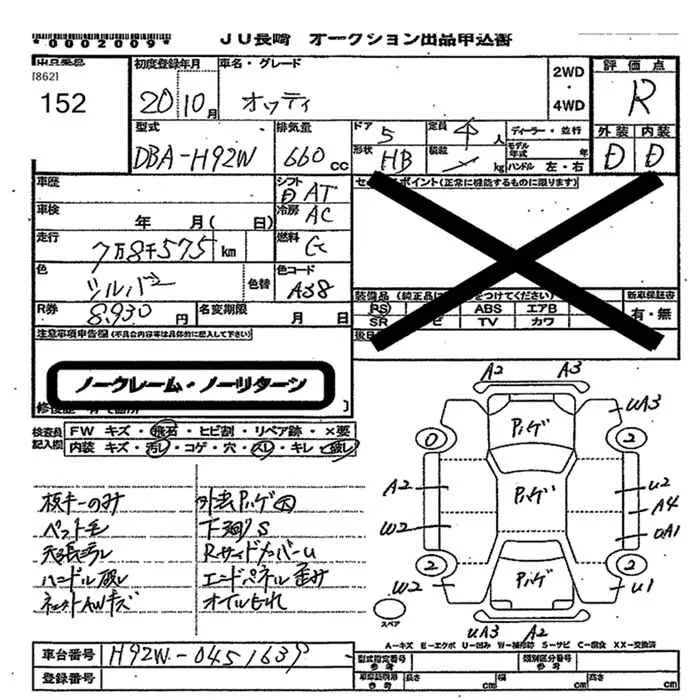 *0002009*
JU長崎 オークション出品申込書
出品番号
[862]
152
初度登録年月
20 10月
車名・グレード
オッティ
2WD
・
4WD
評価点
R
型式
DBA-H92W
排気量
660 cc
ドア
5
定員
4人
ディーラー・並行
形状
HB
積載
kg
モデル年式 年
ハンドル 左・右
外装 内装
D D
車歴
シフト
AT
セールスポイント(正常に機能するものに限ります)
車検
年 月( 日)
冷房
AC
走行
7万8千575 km
燃料
G
色
シルバー
色替
色コード
A38
装備品(純正品に○をつけてください)
PS ABS エアB
SR TV カワ
新車保証書
有・無
R券
8,930円
名変期限
月 日
注意事項申告欄(不具合内容等は具体的に記入して下さい)
ノークレーム・ノーリターン
検査員記入欄
FW キズ・飛石・ヒビ割・リペア跡・×要
内装 キズ・汚レ・コゲ・穴・スレ・キレ・破レ
板キーのみ
ペット毛
天張汚レ
ハンドル破レ
ネット AWキズ
外装ハゲ大
下廻りS
RサイドカバーU
エンドパネル歪み
オイルもれ
A2 A3
UA3
ハゲ
0 2
A2 ハゲ U2
A4
W2 UA1
2 2
W2 ハゲ U1
スペア
UA3 A2
A-キズ E-エクボ U-凹み W-補修跡 S-サビ C-腐食 XX-交換済
車台番号 H92W-0451639
登録番号
型式指定番号 参考
類別区分番号 参考
長さ cm 幅 cm 高さ cm